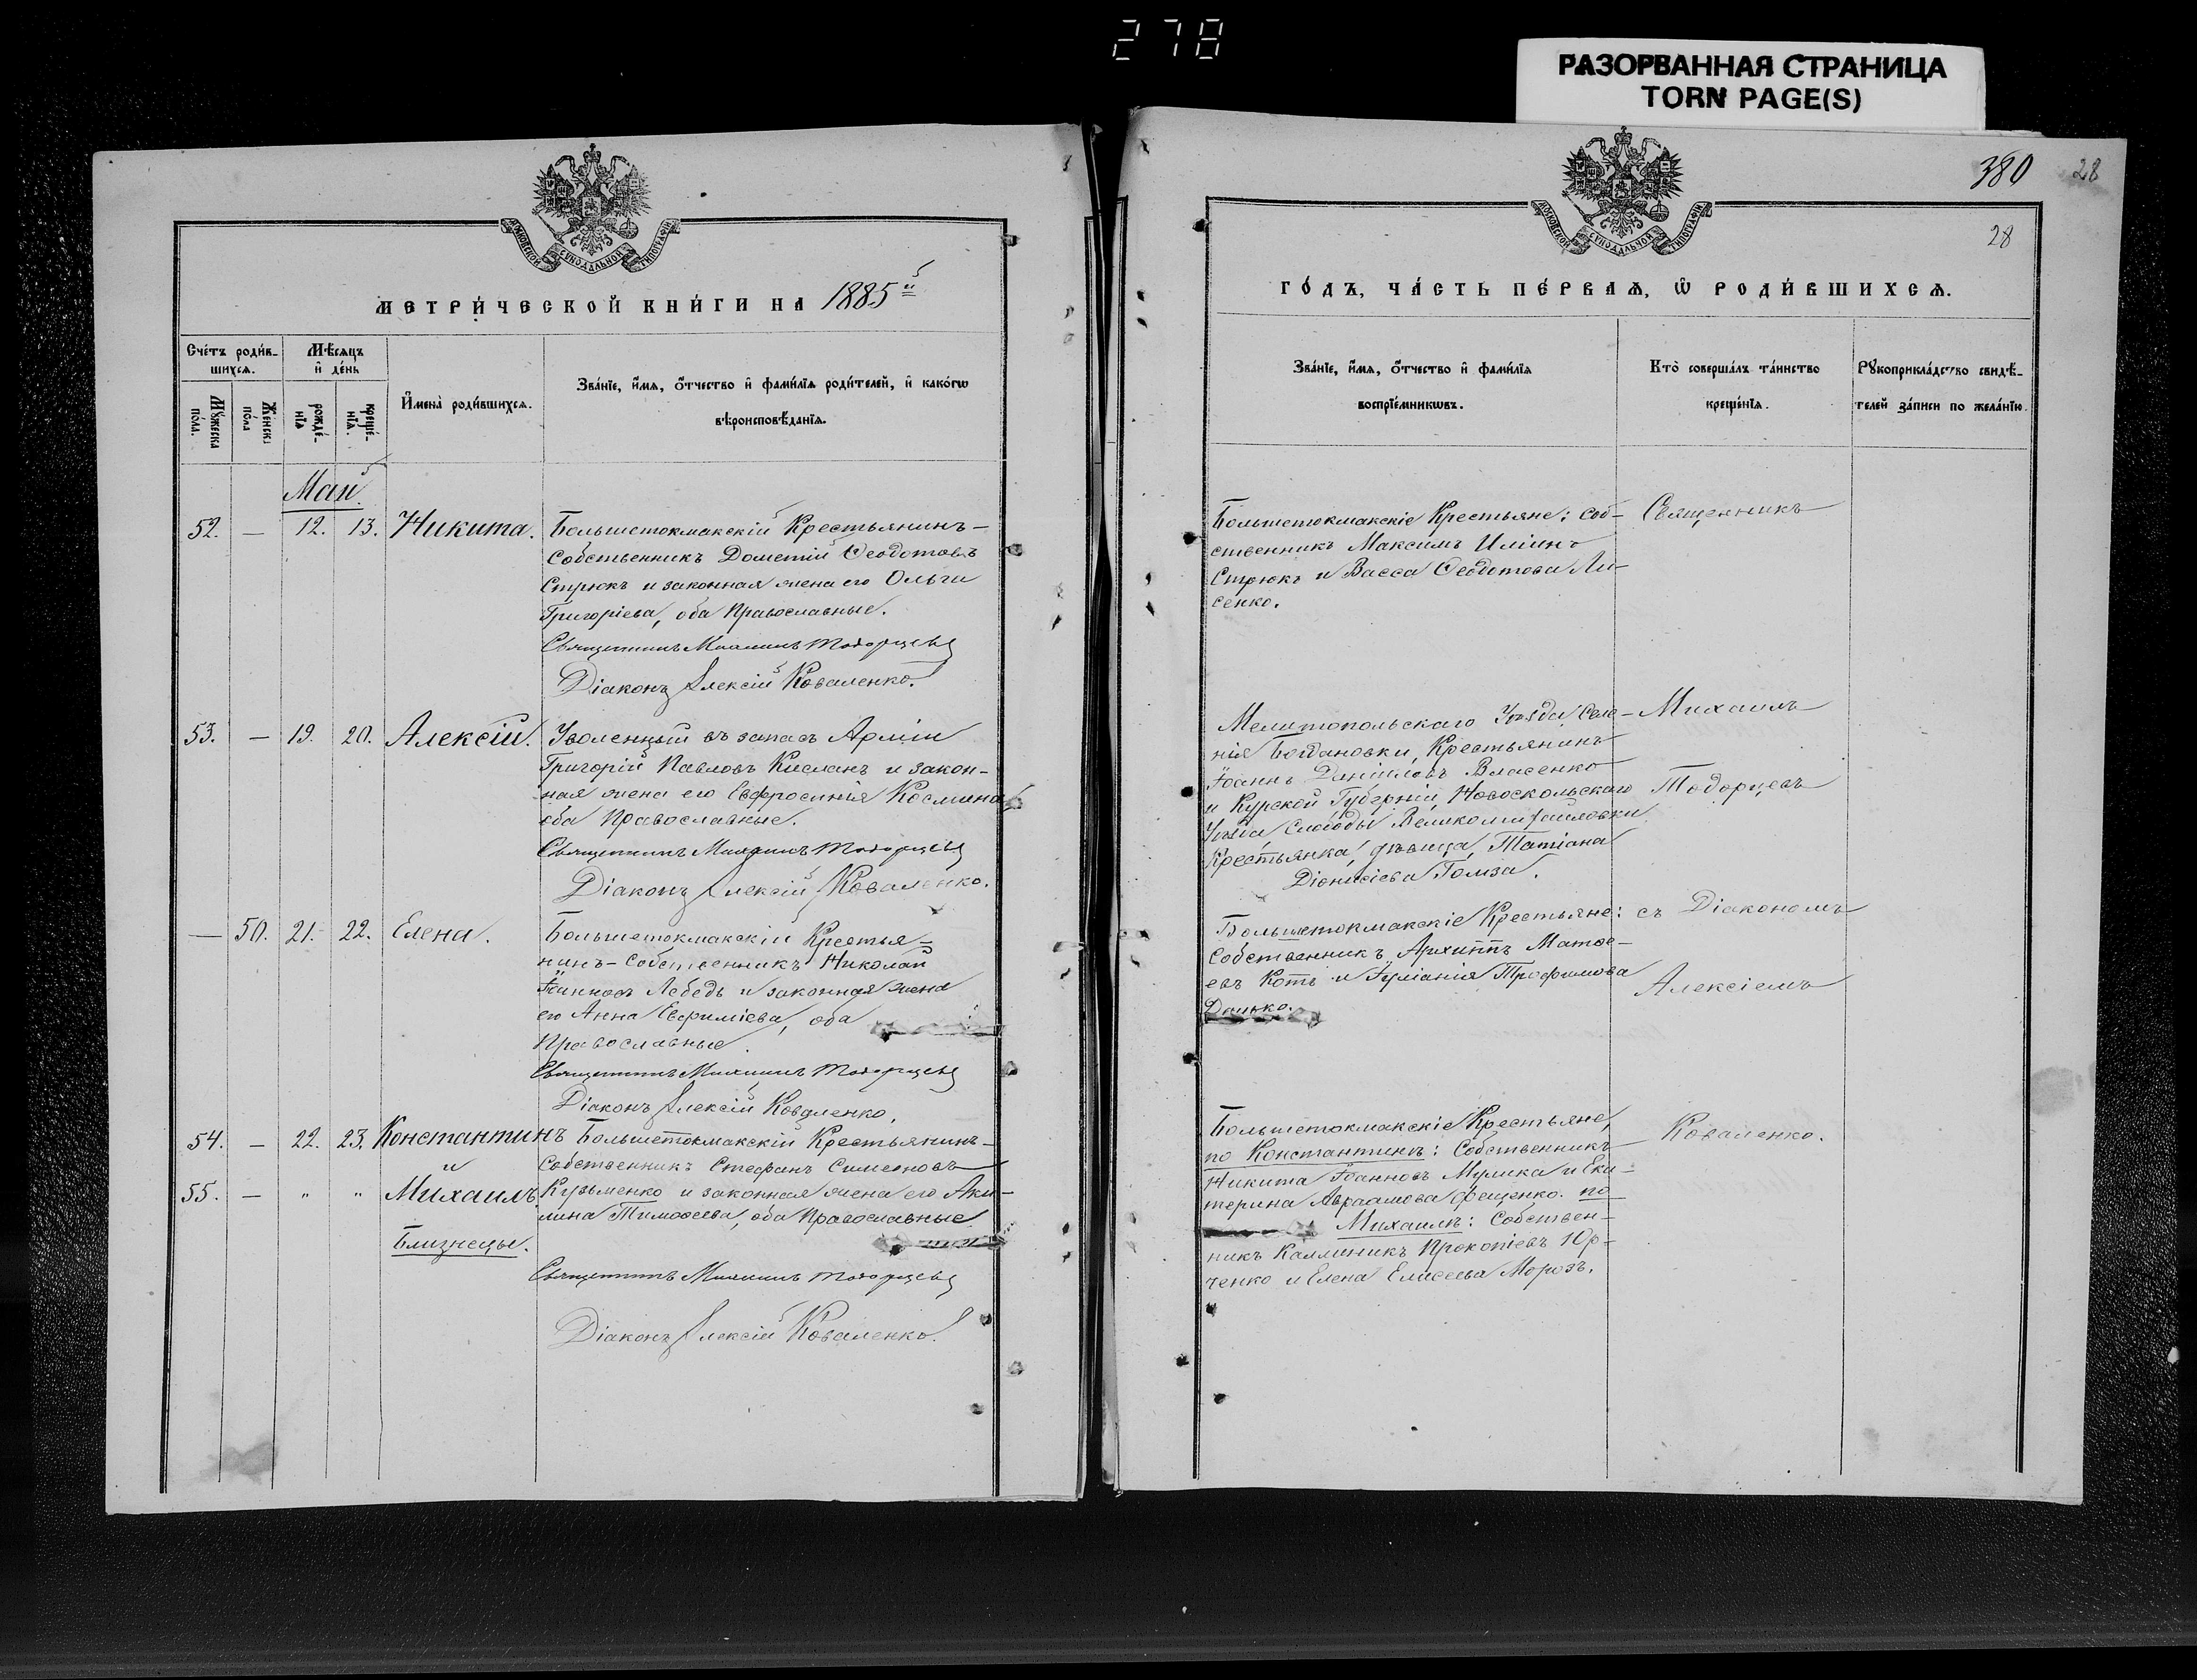 278
РАЗОРВАННАЯ СТРАНИЦА
TORN PAGE(S)
380
28
28
МОСКОВСКОЙ СУНОДАЛЬНОЙ ТИПОГРАФІИ
МЕТРИ́ЧЕСКОЙ КНИ́ГИ НА 1885й
Сче́тъ роди́вшихсѧ.
Мꙋ́жеска по́ла.
Же́нска по́ла
Мѣ́сѧцъ и҆ де́нь
рожде́нїѧ
креще́нїѧ.
И҆мена̀ роди́вшихсѧ.
Зва́нїе, и҆́мѧ, ѻ҆́тчество и҆ фами́лїѧ роди́телей, и҆ како́гѡ
вѣроисповѣ́данїѧ.
Май
52. — 12. 13. Никита.
Большетокмакскій Крестьянинъ-
Собственникъ Дометій Ѳеодотовъ
Стрюкъ и законная жена его Ольги
Григоріева, оба Православные.
Священникъ Михаилъ Тодорцевъ
Діаконъ Алексій Коваленко.
53. — 19. 20. Алексій.
Уволенный въ запасъ Арміи
Григорій Павловъ Кисланъ и закон-
ная жена его Евфросинія Космина
оба Православные.
Священникъ Михаилъ Тодорцевъ
Діаконъ Алексій Коваленко.
— 50. 21. 22. Елена.
Большетокмакскій Крестья-
нинъ-Собственникъ Николай
Іоанновъ Лебедь и законная жена
его Анна Евфиміева, оба
Православные.
Священникъ Михаилъ Тодорцевъ
Діаконъ Алексій Коваленко.
54. — 22. 23. Константинъ
и
55. — " " Михаилъ
Близнецы.
Большетокмакскій Крестьянинъ-
Собственникъ Стефанъ Симеоновъ
Кузьменко и законная жена его Аки-
лина Тимоѳеева, оба Православные
Священникъ Михаилъ Тодорцевъ
Діаконъ Алексій Коваленко.
МОСКОВСКОЙ СУНОДАЛЬНОЙ ТИПОГРАФІИ
ГО́ДЪ, ЧА́СТЬ ПЕ́РВАѦ, Ѡ҆ РОДИ́ВШИХСѦ.
Зва́нїе, и҆́мѧ, ѻ҆́тчество и҆ фами́лїѧ
воспрїе́мникѡвъ.
Кто̀ соверша́лъ та́инство
креще́нїѧ.
Рꙋкоприкла́дство свидѣ́-
телей за́писи по жела́нїю.
Большетокмакскіе Крестьяне: Соб-
ственникъ Максимъ Иліинъ
Стрюкъ и Васса Ѳеодотова Ли-
сенко.
Мелитопольскаго Уѣзда, Селе-
нія Богдановки, Крестьянинъ
Іоаннъ Даніиловъ Власенко
и Курской Губерніи, Новоскольскаго
Уѣзда Слободы Великомихайловки
Крестьянка, дѣвица, Татіана
Діонисіева Гомза.
Большетокмакскіе Крестьяне:
Собственникъ Архиппъ Матѳе-
евъ Котъ и Іуліанія Трофимова
Данько.
Большетокмакскіе Крестьяне,
по Константинѣ: Собственникъ
Никита Іоанновъ Мулика и Ека-
терина Авраамова Фещенко. по
Михаилѣ: Собствен-
никъ Каллиникъ Прокопіевъ Юр-
ченко и Елена Елисеева Морозъ.
Священникъ
Михаилъ
Тодорцевъ
съ Діакономъ
Алексіемъ
Коваленко.